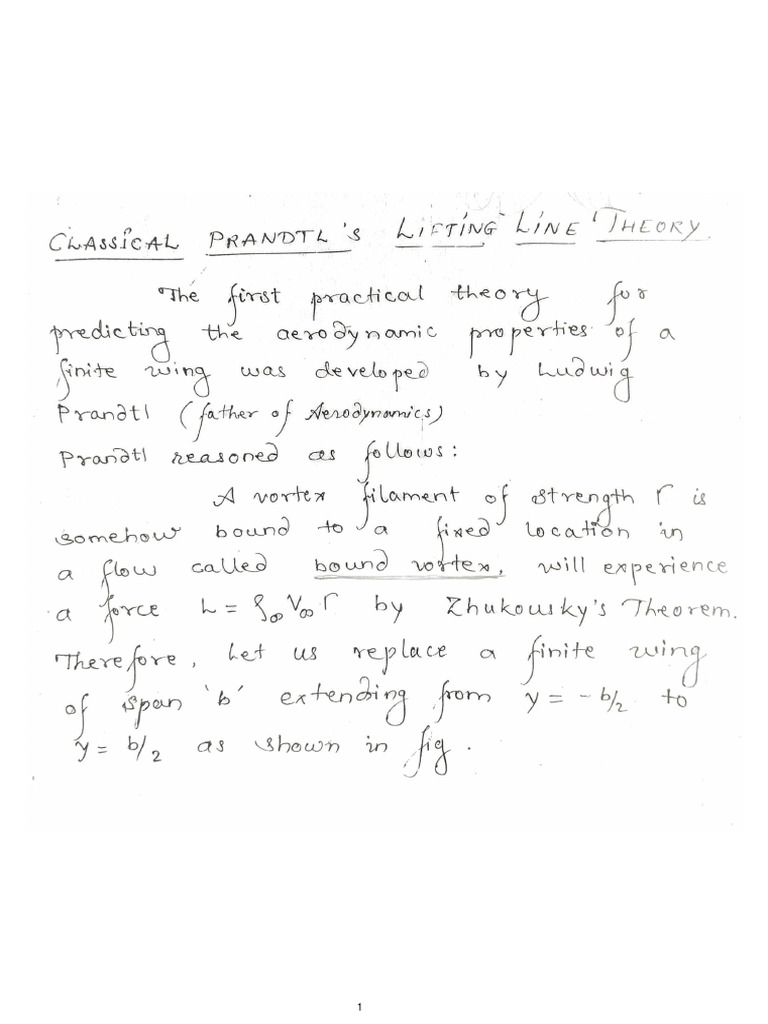 CLASSICAL PRANDTL'S LIFTING LINE THEORY.
The first practical theory for
predicting the aerodynamic properties of a
finite wing was developed by Ludwig
Prandtl (father of Aerodynamics)
Prandtl reasoned as follows:
A vortex filament of strength Γ is
somehow bound to a fixed location in
a flow called bound vortex, will experience
a force L = ρ∞ V∞ Γ by Zhukowsky's Theorem.
Therefore, Let us replace a finite wing
of span 'b' extending from y = -b/2 to
y = b/2 as shown in fig.
1